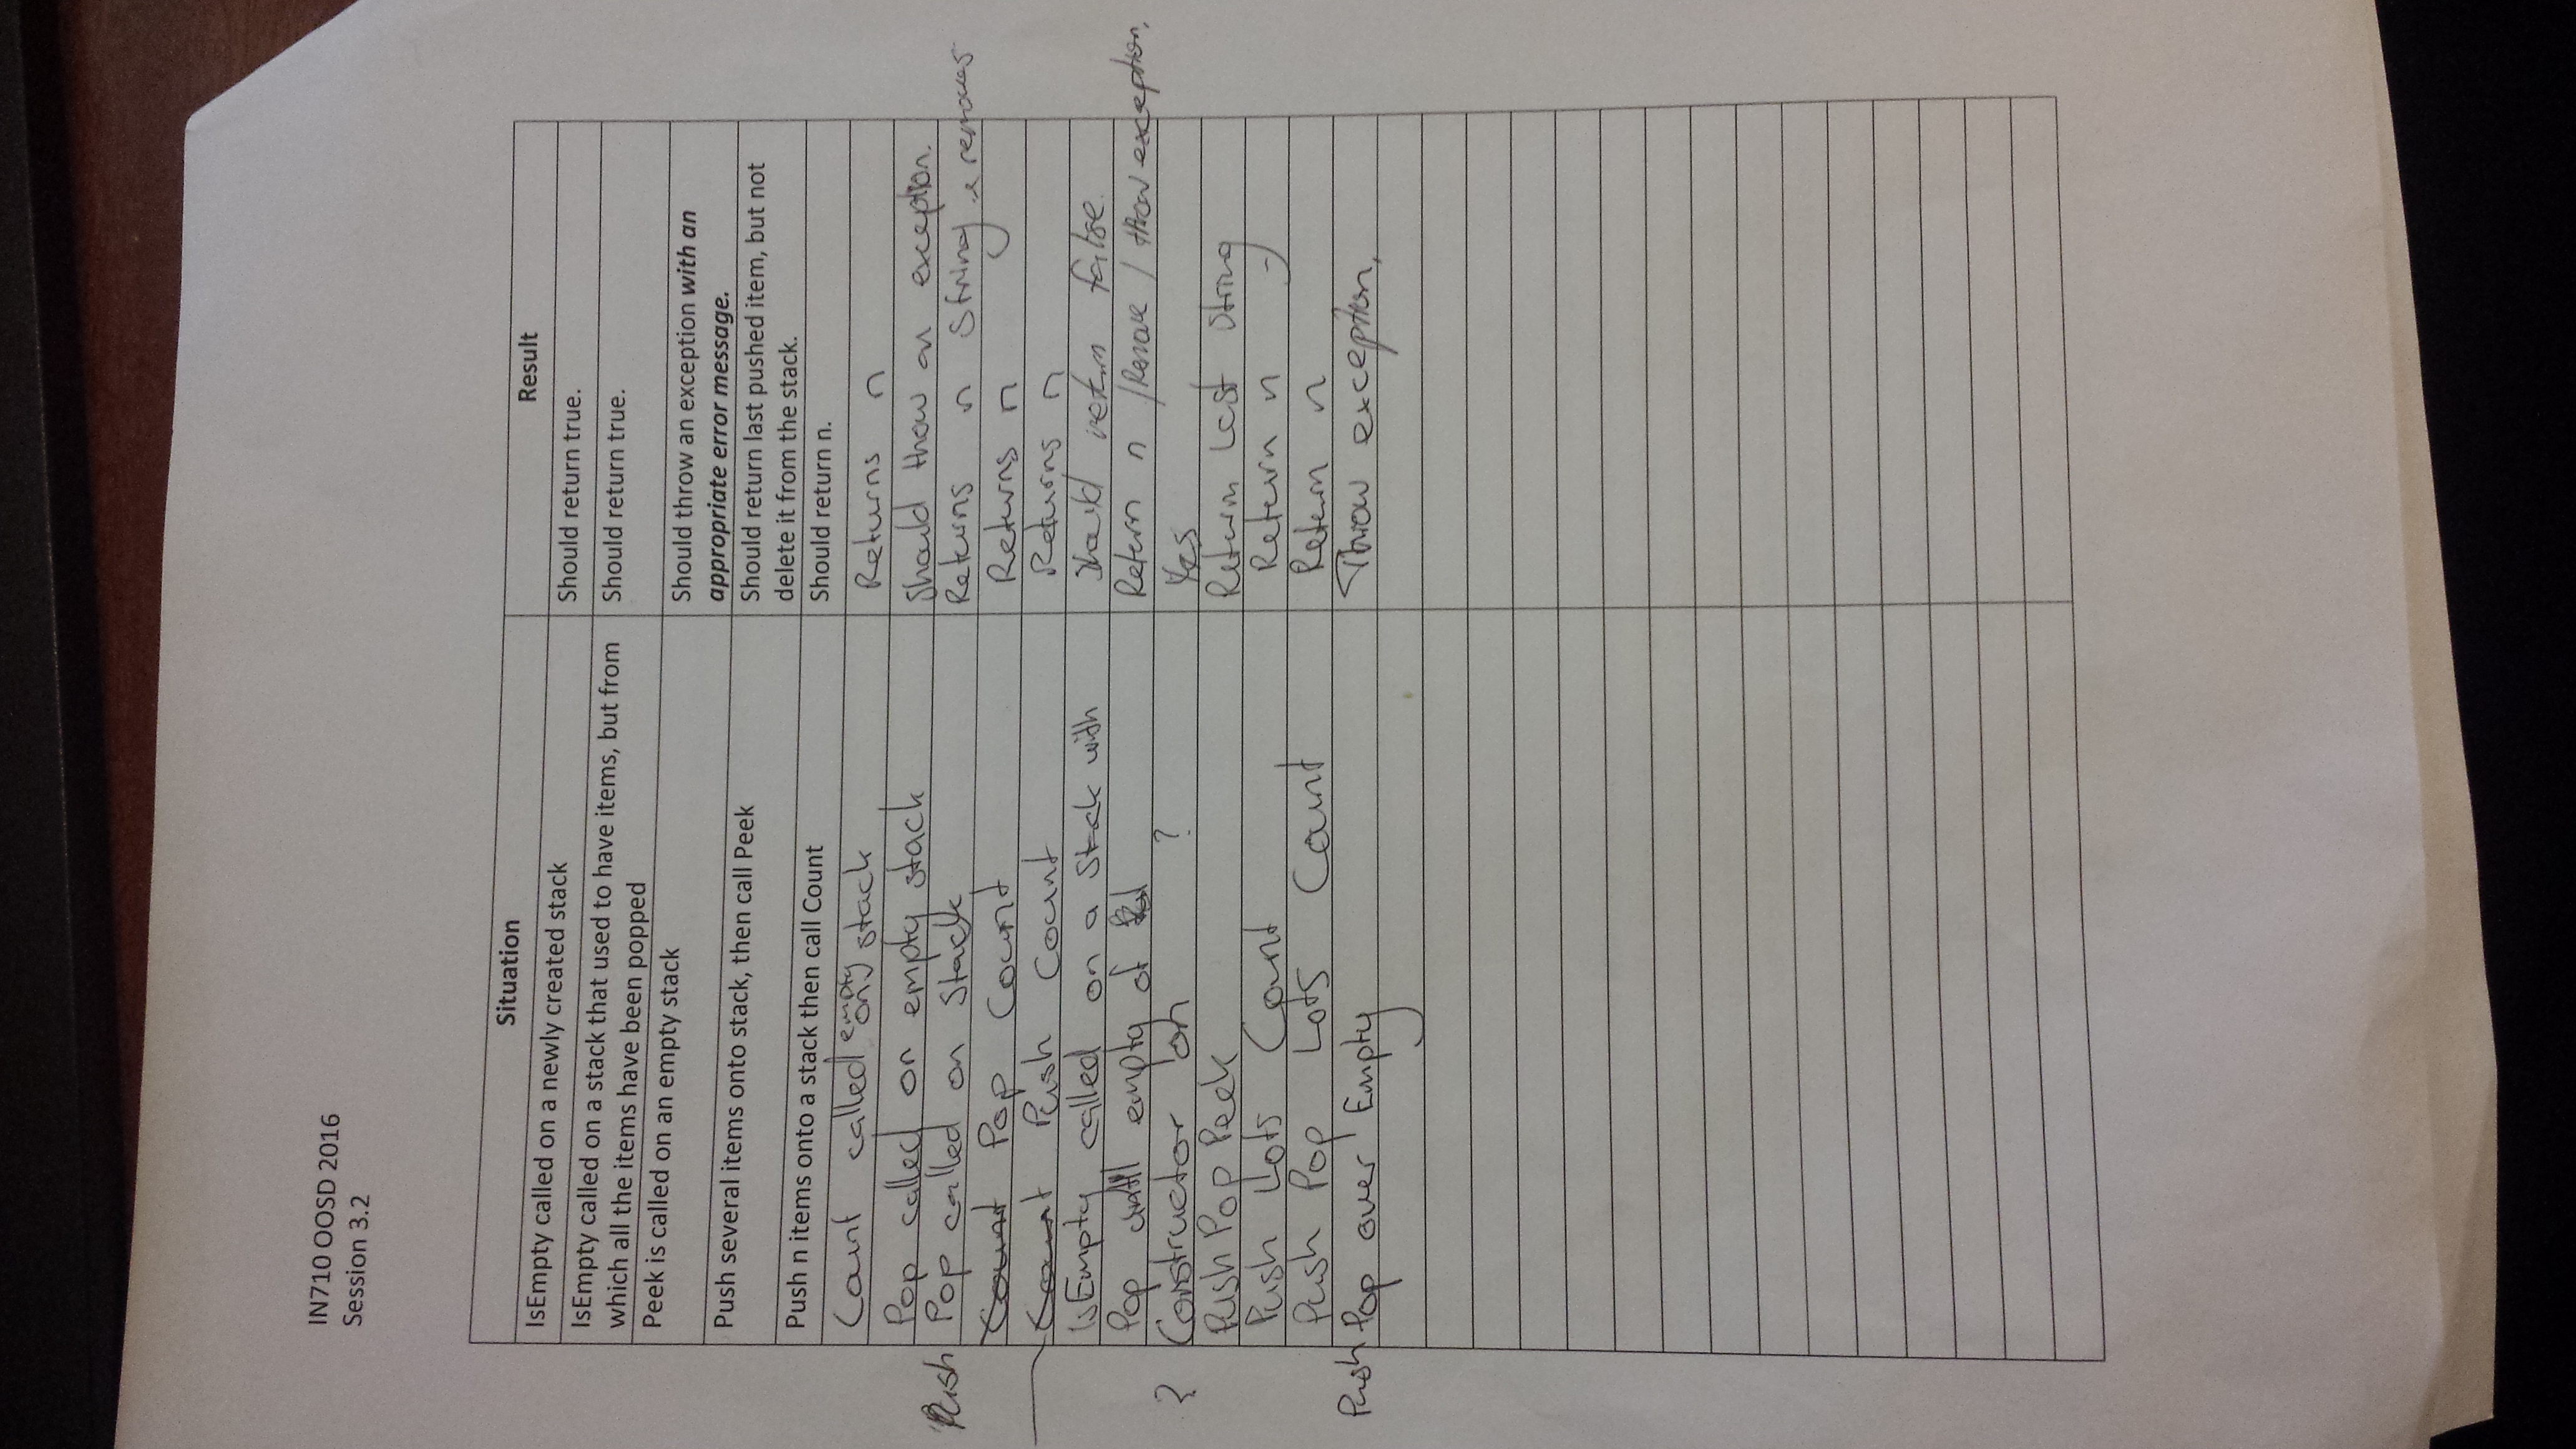 IN710 OOSD 2016
Session 3.2
Situation Result
IsEmpty called on a newly created stack Should return true.
IsEmpty called on a stack that used to have items, but from Should return true.
which all the items have been popped
Peek is called on an empty stack Should throw an exception with an
appropriate error message.
Push several items onto stack, then call Peek Should return last pushed item, but not
delete it from the stack.
Push n items onto a stack then call Count Should return n.
Count called empty stack Returns n
Pop called on empty stack Should throw an exception.
Push Pop called on stack Returns n string & removes
Count Pop Count Returns n
Count Push Count Returns n
IsEmpty called on a stack with Should return false.
Pop until empty of Return n / / throw exception.
? Constructor ? Yes
Push Pop Peek Return Last String
Push Lots Count Return n :)
Push Pop Lots Count Return n
Push Pop over Empty Throw exception,